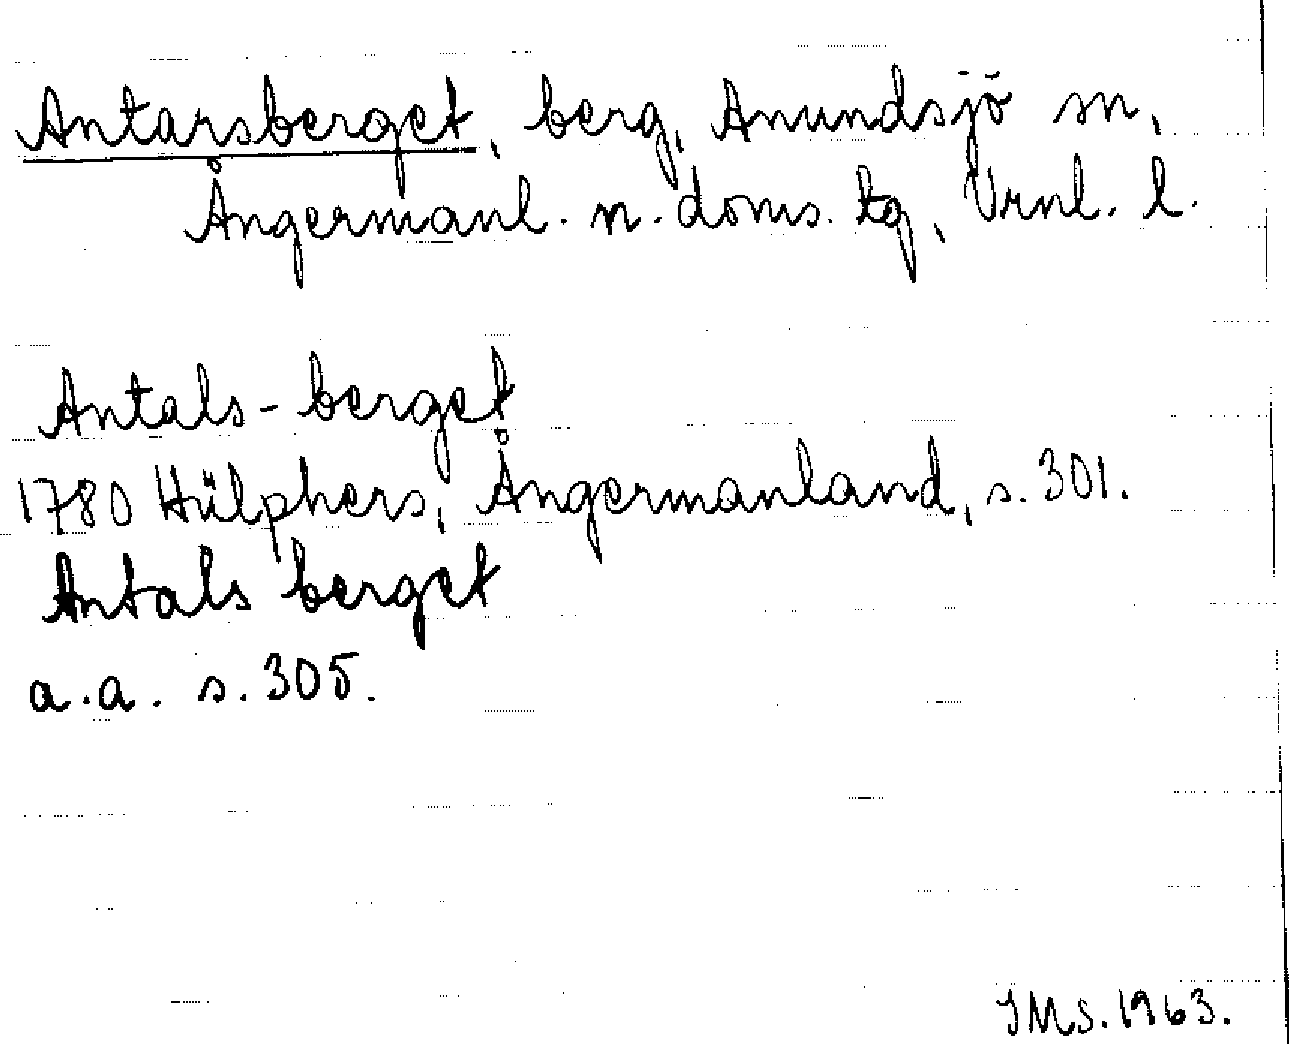 Antarsberget, berg, Anundsjö sn,
Ångermanl. n. doms. tg, Vrnl. l.
Antals-berget
1780 Hülphers, Ångermanland, s. 301.
Antals berget
a.a. s. 305.
IMS. 1963.